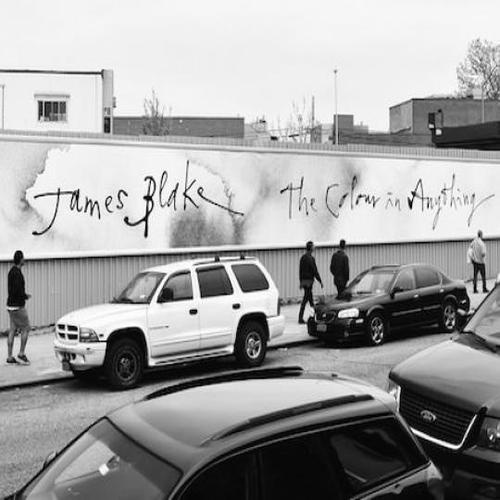 James Blake
the Colour in Anything
Ford